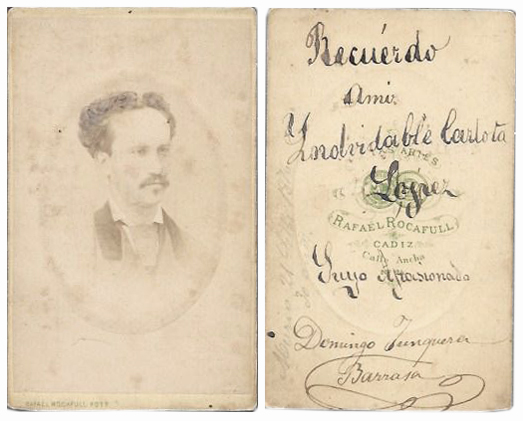 RAFAEL ROCAFULL FOTº
Recuérdo
Ami
Ynolvidable Carlota
Lopez
ARTES
RAFAEL ROCAFULL
CADIZ
Calle Ancha
Suyo Apasionado
Domingo Junquera
Barrasa